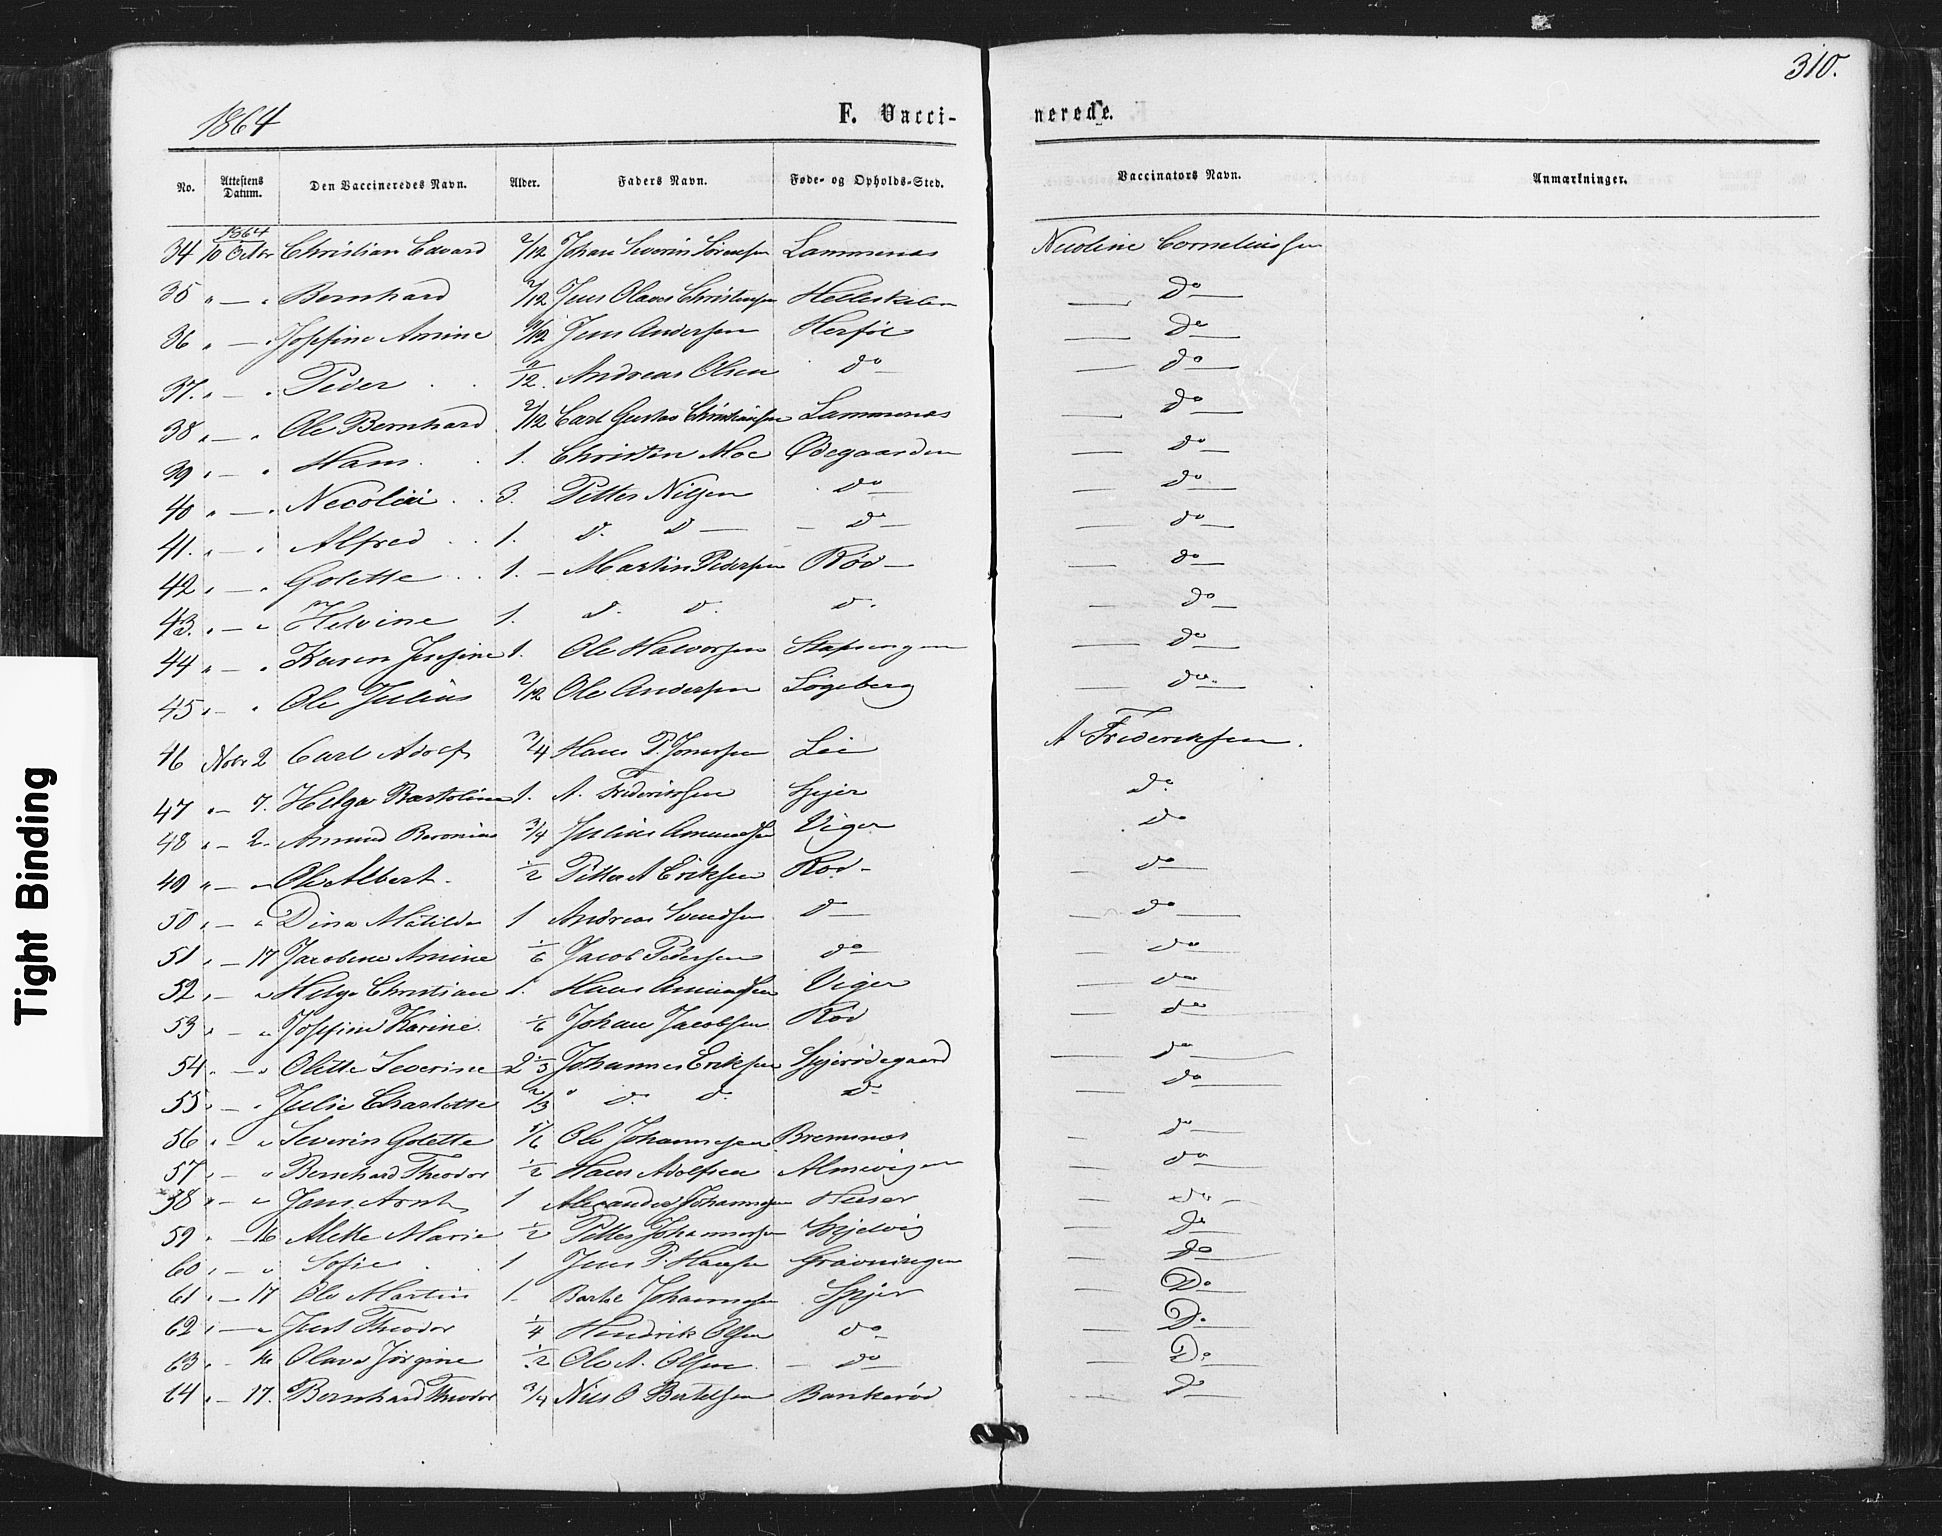 310.
1864
F. Vacci-
nerede.
No. Attestens Datum. Den Vaccineredes Navn. Alder. Faders Navn. Føde- og Opholds-Sted. Vaccinators Navn. Anmærkninger.
1864
34 10 Octbr Christian Edvard 2/12 Johan Severin Sørensen Lammenæs Nicoline Corneliussen
35 " — " Bernhard 2/12 Jens Olaves Christensen — Do —
36 " — " Josefine Amine 9/12 Jens Andersen Herføl — Do —
37. " — " Peder 2/12. Andreas Olsen do — — do —
38 " — " Ole Bernhard 2/12 Carl Gustav Christiansen Lammenæs — do —
39 " — " Hans. 1. Christen Moe Ødegaarden — do —
40 " — " 3. Petter Nilsen do — — do —
41. " — " Alfred 1. D. D — — do — — do —
42 " — " Golette 1. — Martin Pedersen Rød — — do —
43. " — " Helvine 1. d. d. d. — do —
44 " — " Karen Josefine 1. Ole Halvorsen Stafsengen — do —
45 " — " Ole Julius 2/12 Ole Andersen Løgeberg — do —
46 Novr 2 Carl Adolf 3/4 Hans P. Jonsen Lie A Frederiksen.
47 " — 7. Helga Bartoline 1. A. Frideriksen Spjer do
48 " — 2 — Amund Beronius 3/4 Julius Amundsen Viger do
49 " — " Ole Albert. 1/2 Petter A Eriksen Rød — — do —
50 " — " Dina Matilde 1 Andreas Svendsen D — — do —
51 " — 17 Jacobine Amine 1/6 Jacob Pedersen do — — do —
52 " — " Helge Christian 1. Hans Amundsen Viger — do —
53 " — " Josefine Karine 1/6 Johan Jacobsen Rød — do —
54 " — " Olette Severine 2 1/3 Johannes Eriksen Spjerødegaard — do —
55 " — " Julie Charlotte 2/3 " D. D. D. — do —
56 " — " Severin Golette 5/6 Ole Johannesen Bremsnes — do —
57 " — " Bernhard Theodor 1/2 Hans Adolfsen Almevigen — do —
58 " — " Jens Arnt 1 Alexander Johannesen — do —
59 " — 16 Alette Marie 1/2 Petter Johannesen Skjelvig — Do —
60 " — " Sofie 1 Jens P. Hansen Gravningen — Do —
61 " — 17 Ole Martin 1. Johannesen Spjer — Do —
62 " — " Theodor 1/4 Hendrik Olsen do — — Do —
63 " — 16 Olava Jørgine 1/2 Ole A. Olsen — do — — Do —
64 " — 17. Bernhard Theodor 3/4 Nils O Bertelsen Bankerød — do —
Tight Binding